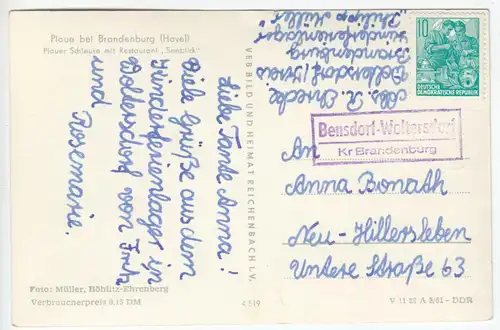 Plaue bei Brandenburg (Havel)
Plauer Schleuse mit Restaurant „Seeblick"
Liebe Tante Anna!
Viele Grüße aus dem
Kinderferienlager in
Woltersdorf von Fritz
und Rosemarie.
Foto: Müller, Böhlitz-Ehrenberg
Verbraucherpreis 0,15 DM
VEB BILD UND HEIMAT REICHENBACH I. V.
4 519
Abs. R.
Woltersdorf/Kreis
Brandenburg
Kinderferienlager
"Philipp Müller"
10
DEUTSCHE
DEMOKRATISCHE REPUBLIK
Bensdorf-Woltersdorf
Kr Brandenburg
An
Anna Bonath
Neu-Hillersleben
Untere Straße 63
V 11 28 A 3/61 - DDR